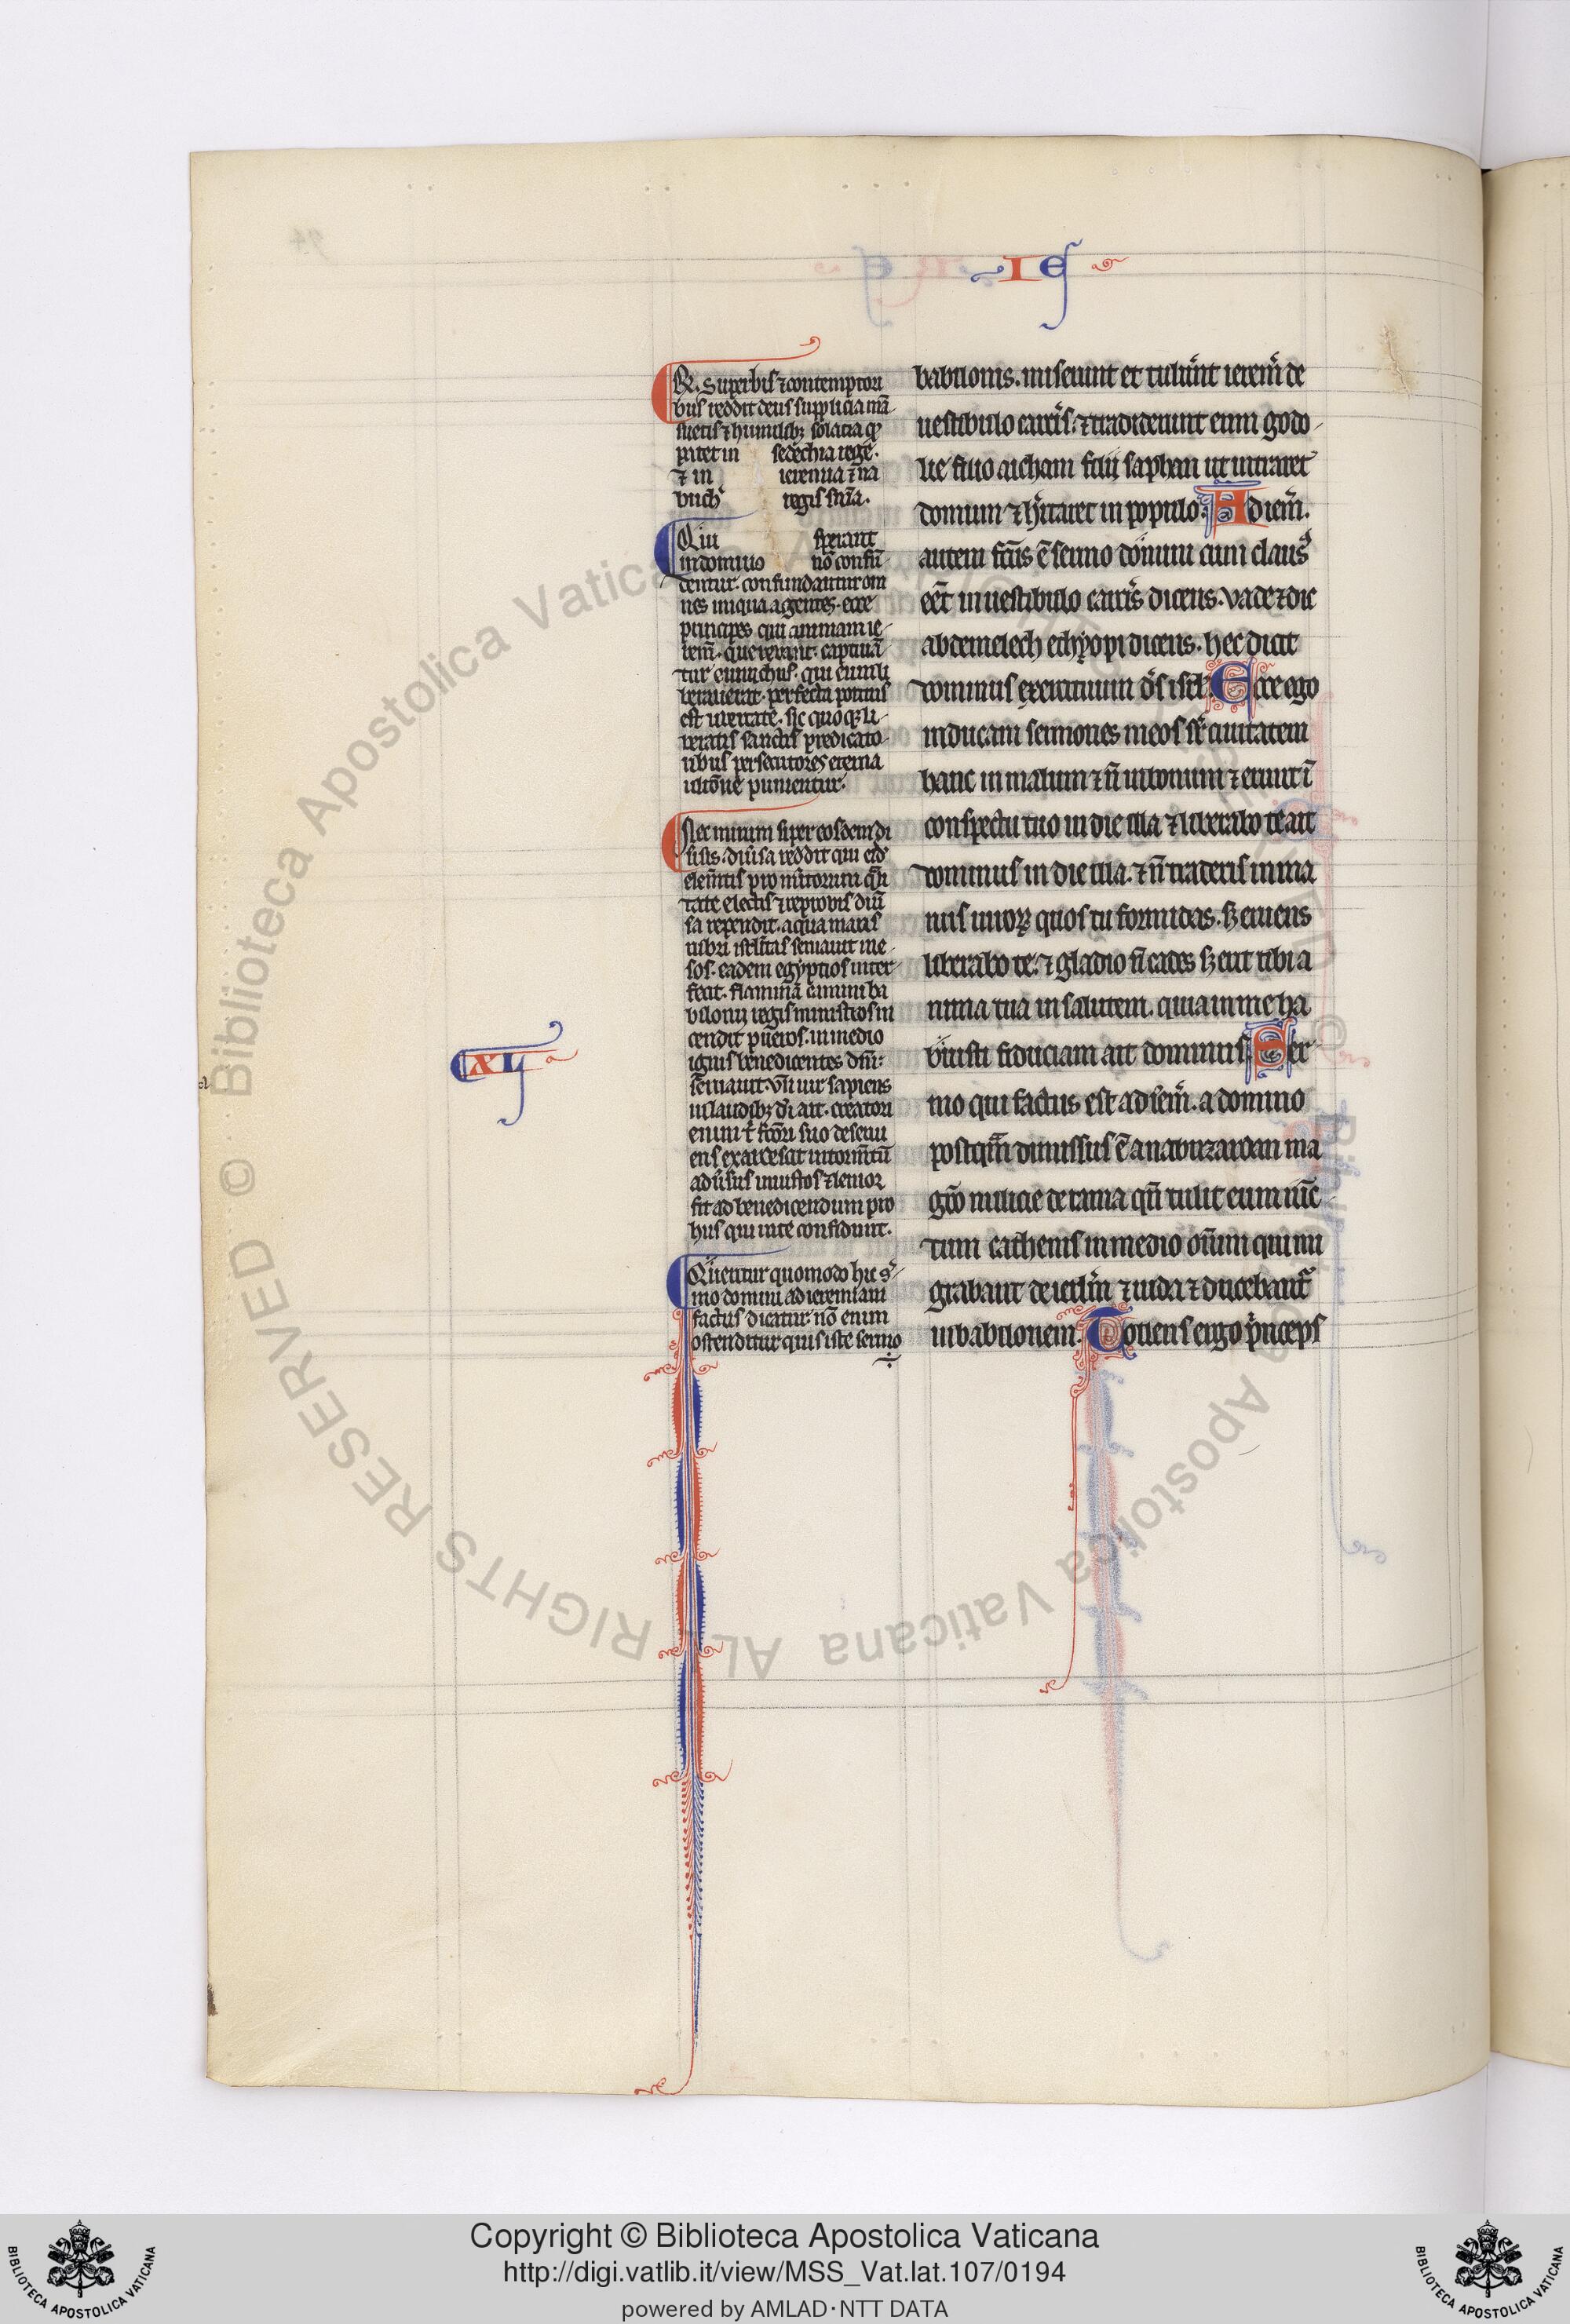 I E
R. Superbis ⁊ contemptori
bus reddit deus supplicia mā
suetis ⁊ humilibȝ solatia qđ
patet in sedechia rege.
⁊ in ieremia
regis
Qui sperant
in domino nō confū
dentur. confundantur om
nes iniqua agentes. ecce
principes qui animam ie
rem̄. querebant. captiuā
tur eunuchus. qui eum li
berauerat. perfecta potitus
est libertate. sic quoqȝ li
beratis sanctis predicato
ribus persecutores eterna
ultiōne punientur.
Nec mirum super eosdem di
uersa reddit qui
elem̄tis pro
tate electis ⁊ reprobis diū
sa rependit. aqua maris
rubri isrl̄itas seruauit ille
sos. eadem egyptios inter
fecit. flammā camini ba
bilonii regis ministros in
cendit pueros. in medio
ignis benedicentes dn̄m:
seruauit. vn̄ uir sapiens
in laudibȝ di ait. creatori
enim ⁊ fc̄ori suo deserui
ens exardescit in torm̄tū
adūsus iniustos ⁊ lenior
fit ad benedicendum pro
hiis qui in te confidunt.
Queritur quomodo hic s̄
mo domini ad ieremiam
factus dicatur: nō enim
ostenditur quis iste sermo
XL
babilonis. miserunt et tulerūt ierem̄ de
uestibulo carcis. ⁊ tradiderunt eum godo
lie filio aicham filij saphan ut intraret
domum ⁊ hītaret in populo. Ad iem̄.
autem fc̄us ē sermo domini cum clausꝰ
eēt in uestibulo carcis dicens. vade ⁊ dic
abdemelech ethyopi dicens. hec dicit
dominus exercituum ds̄ isrl. Ecce ego
inducam sermones meos sr̄ ciuitatem
hanc in malum ⁊ n̄ in bonum ⁊ erunt ī
conspectu tuo in die illa ⁊ liberabo te ait
dominus in die illa. ⁊ n̄ traderis in ma
nus uiroꝝ quos tu formidas. sȝ eruens
liberabo te. ⁊ gladio n̄ cades sȝ erit tibi a
nima tua in salutem. quia in me ha
buisti fiduciam ait dominus Ser
mo qui factus est ad iem̄. a domino
postqm̄ dimissus ē a nabuzardan ma
gr̄o milicie de rama qn̄ tulit eum uīc
tum cathenis in medio om̄ium qui mi
grabant de ierlm̄ ⁊ iuda ⁊ ducebant̄
in babilonem. Tollens ergo p̄nceps
Copyright © Biblioteca Apostolica Vaticana
http://digi.vatlib.it/view/MSS_Vat.lat.107/0194
powered by AMLAD·NTT DATA